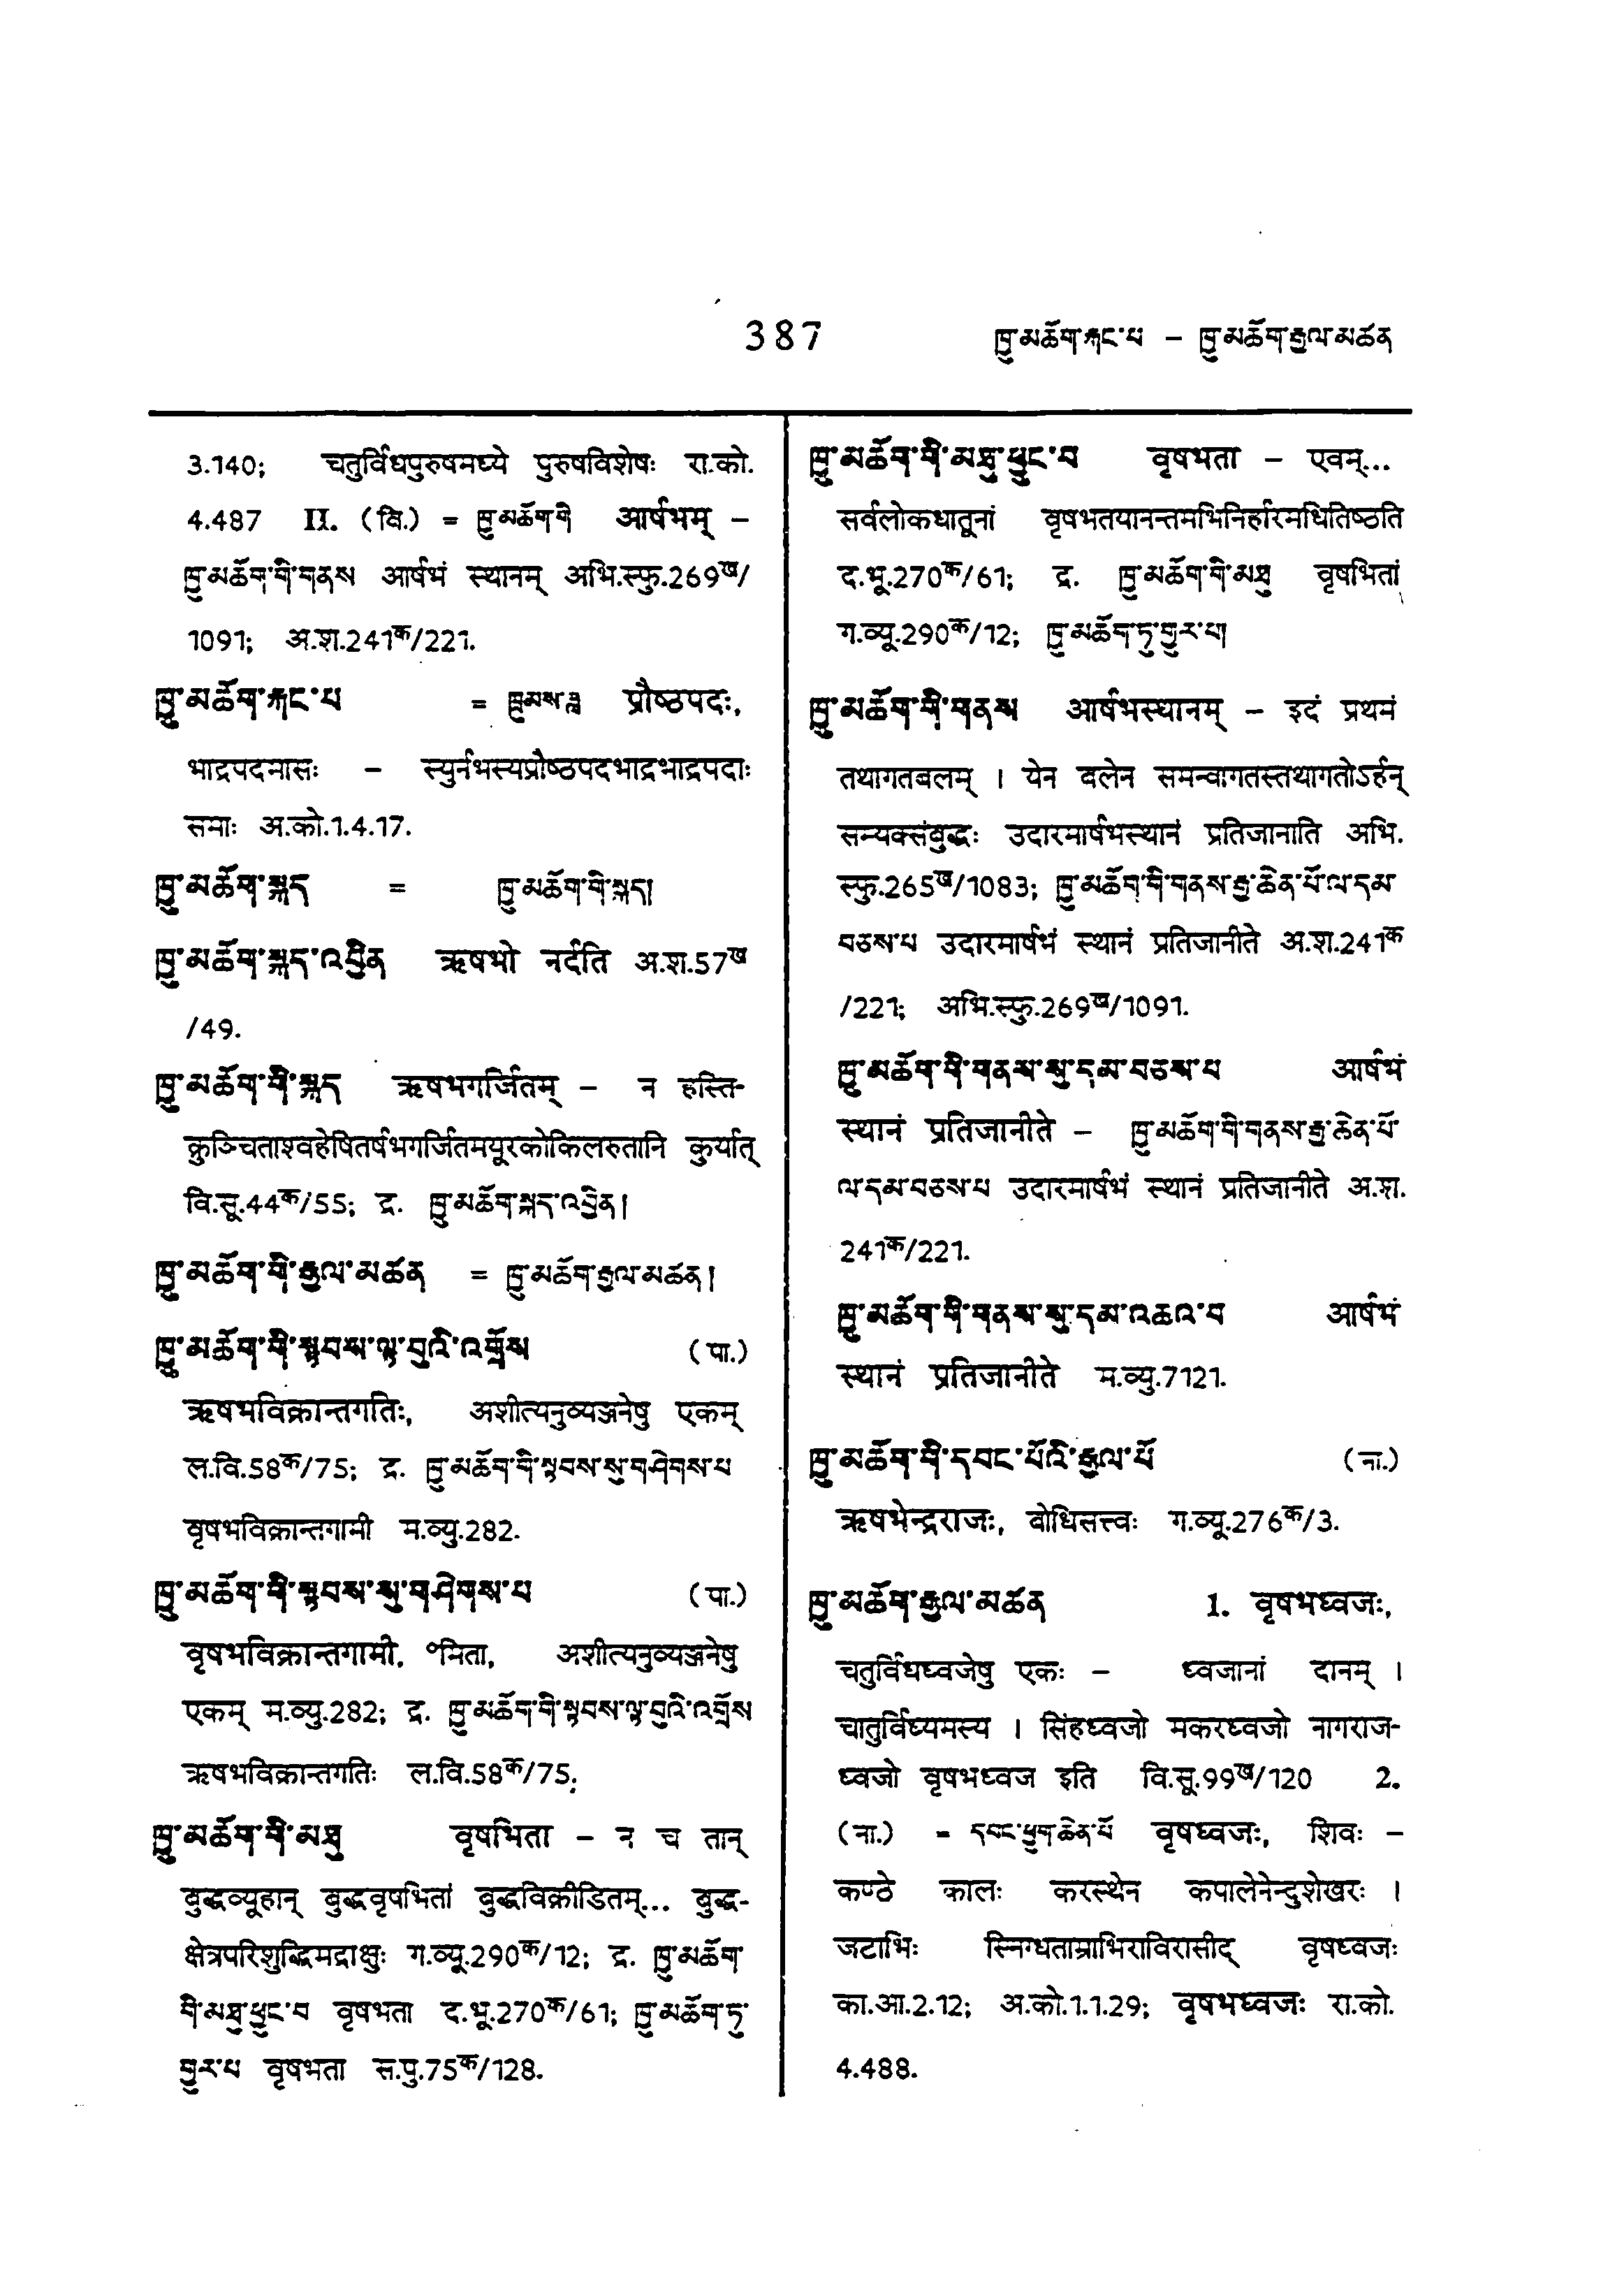 387
ཁྱུ་མཆོག་རྐང་པ – ཁྱུ་མཆོག་རྒྱལ་མཚན
3.140; चतुर्विधपुरुषमध्ये पुरुषविशेषः रा.को.
4.487 II. (वि.) = ཁྱུ་མཆོག་གི आर्षभम् –
ཁྱུ་མཆོག་གི་གནས आर्षभं स्थानम् अभि.स्फु.269ख/
1091; अ.श.241क/221.
ཁྱུ་མཆོག་རྐང་པ = ཁྲུམས་ཟླ प्रौष्ठपदः,
भाद्रपदमासः – स्युर्नभस्यप्रौष्ठपदभाद्रभाद्रपदाः
समाः अ.को.1.4.17.
ཁྱུ་མཆོག་སྐད = ཁྱུ་མཆོག་གི་སྐད།
ཁྱུ་མཆོག་སྐད་འབྱིན ऋषभो नर्दति अ.श.57ख
/49.
ཁྱུ་མཆོག་གི་སྐད ऋषभगर्जितम् – न हस्ति-
क्रुञ्चिताश्वहेषितर्षभगर्जितमयूरकोकिलरुतानि कुर्यात्
वि.सू.44क/55; द्र. ཁྱུ་མཆོག་སྐད་འབྱིན།
ཁྱུ་མཆོག་གི་རྒྱལ་མཚན = ཁྱུ་མཆོག་རྒྱལ་མཚན།
ཁྱུ་མཆོག་གི་སྟབས་ལྟ་བུའི་འགྲོས (पा.)
ऋषभविक्रान्तगतिः, अशीत्यनुव्यञ्जनेषु एकम्
ल.वि.58क/75; द्र. ཁྱུ་མཆོག་གི་སྟབས་སུ་གཤེགས་པ
वृषभविक्रान्तगामी म.व्यु.282.
ཁྱུ་མཆོག་གི་སྟབས་སུ་གཤེགས་པ (पा.)
वृषभविक्रान्तगामी, ०मिता, अशीत्यनुव्यञ्जनेषु
एकम् म.व्यु.282; द्र. ཁྱུ་མཆོག་གི་སྟབས་ལྟ་བུའི་འགྲོས
ऋषभविक्रान्तगतिः ल.वि.58क/75;
ཁྱུ་མཆོག་གི་མཐུ वृषभिता – न च तान्
बुद्धव्यूहान् बुद्धवृषभितां बुद्धविक्रीडितम्... बुद्ध-
क्षेत्रपरिशुद्धिमद्राक्षुः ग.व्यू.290क/12; द्र. ཁྱུ་མཆོག
གི་མཐུ་ཕྱུང་བ वृषभता द.भू.270क/61; ཁྱུ་མཆོག་ཏུ་
གྱུར་པ वृषभता स.पु.75क/128.
ཁྱུ་མཆོག་གི་མཐུ་ཕྱུང་བ वृषभता – एवम्...
सर्वलोकधातूनां वृषभतयानन्तमभिनिर्हारमधितिष्ठति
द.भू.270क/61; द्र. ཁྱུ་མཆོག་གི་མཐུ वृषभितां
ग.व्यू.290क/12; ཁྱུ་མཆོག་ཏུ་གྱུར་པ།
ཁྱུ་མཆོག་གི་གནས आर्षभस्थानम् – इदं प्रथमं
तथागतबलम् । येन बलेन समन्वागतस्तथागतोऽर्हन्
सम्यक्संबुद्धः उदारमार्षभस्थानं प्रतिजानाति अभि.
स्फु.265ख/1083; ཁྱུ་མཆོག་གི་གནས་རྒྱ་ཆེན་པོ་ལ་དམ
བཅས་པ उदारमार्षभं स्थानं प्रतिजानीते अ.श.241क
/221; अभि.स्फु.269ख/1091.
ཁྱུ་མཆོག་གི་གནས་སུ་དམ་བཅས་པ आर्षभं
स्थानं प्रतिजानीते – ཁྱུ་མཆོག་གི་གནས་རྒྱ་ཆེན་པོ་
ལ་དམ་བཅས་པ उदारमार्षभं स्थानं प्रतिजानीते अ.श.
241क/221.
ཁྱུ་མཆོག་གི་གནས་སུ་དམ་འཆའ་བ आर्षभं
स्थानं प्रतिजानीते म.व्यु.7121.
ཁྱུ་མཆོག་གི་དབང་པོའི་རྒྱལ་པོ (ना.)
ऋषभेन्द्रराजः, बोधिसत्त्वः ग.व्यू.276क/3.
ཁྱུ་མཆོག་རྒྱལ་མཚན 1. वृषभध्वजः,
चतुर्विधध्वजेषु एकः – ध्वजानां दानम् ।
चातुर्विध्यमस्य । सिंहध्वजो मकरध्वजो नागराज-
ध्वजो वृषभध्वज इति वि.सू.99ख/120 2.
(ना.) = དབང་ཕྱུག་ཆེན་པོ वृषध्वजः, शिवः –
कण्ठे कालः करस्थेन कपालेनेन्दुशेखरः ।
जटाभिः स्निग्धताम्राभिराविरासीद् वृषध्वजः
का.आ.2.12; अ.को.1.1.29; वृषभध्वजः रा.को.
4.488.